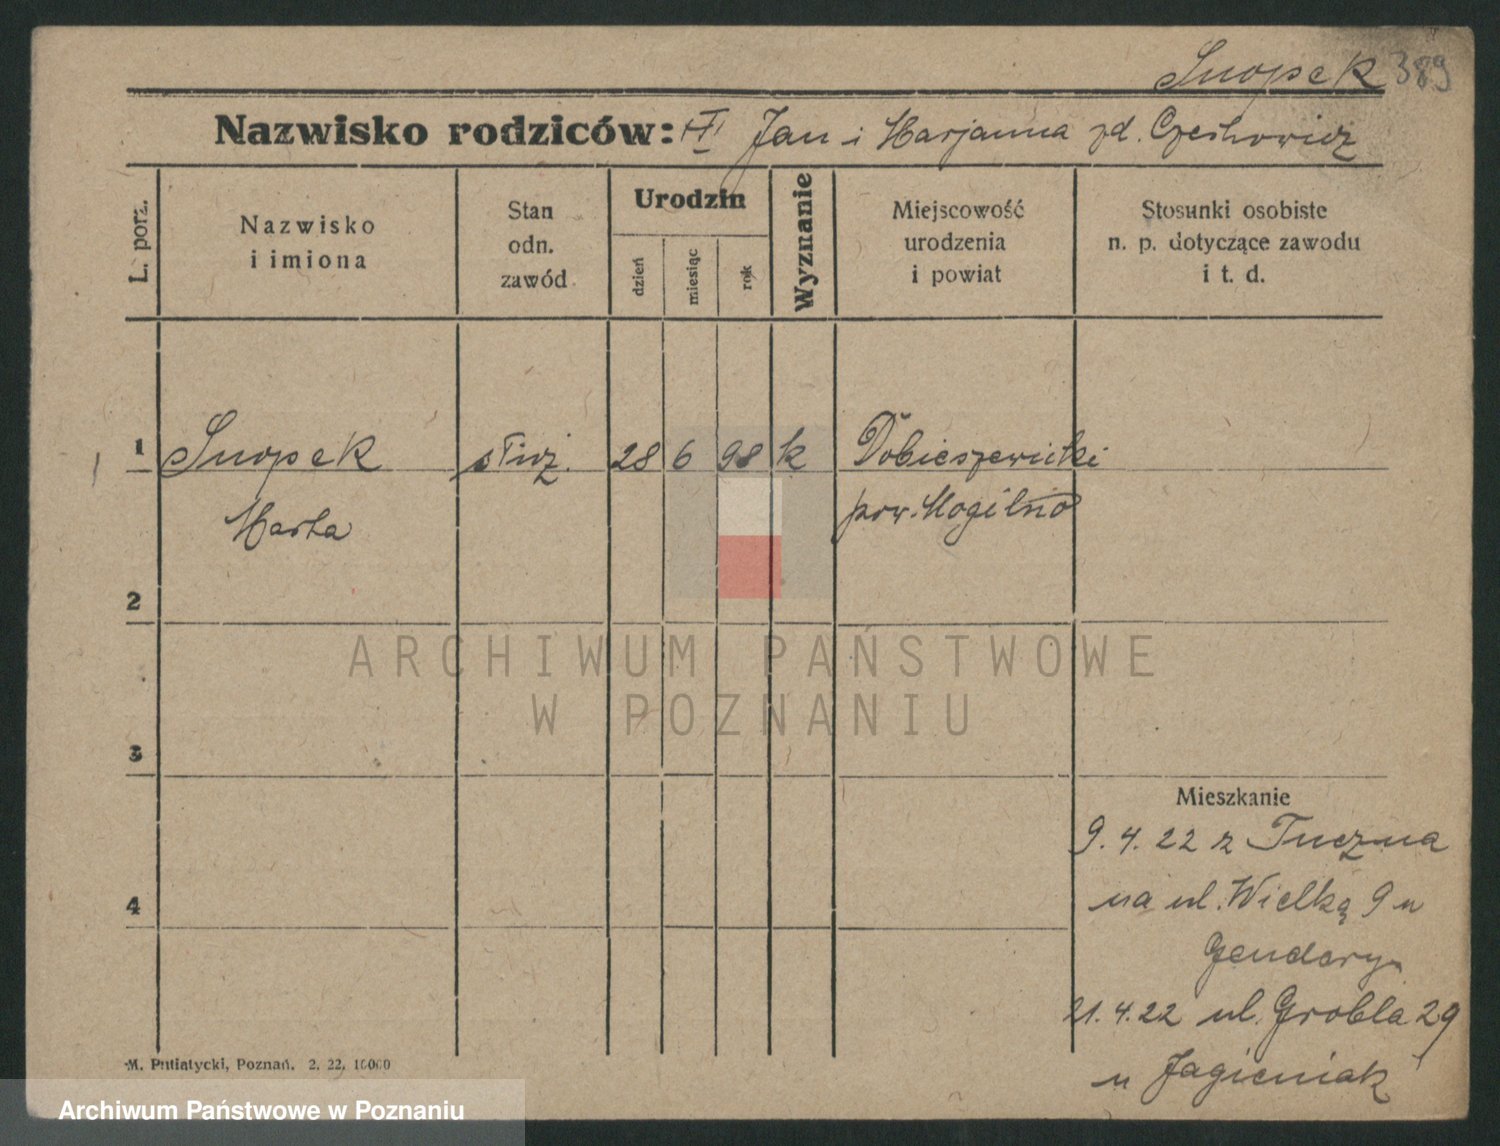 Snopek 389
Nazwisko rodziców: Jan i Marjanna zd. Czechowicz
L. porz.
Nazwisko
i imiona
Stan
odn.
zawód
Urodzin
dzień
miesiąc
rok
Wyznanie
Miejscowość
urodzenia
i powiat
Stosunki osobiste
n. p. dotyczące zawodu
i t. d.
1 Snopek służ. 28 6 98 k Dobieszewiczki
Marta pow. Mogilno
2
ARCHIWUM PAŃSTWOWE
W POZNANIU
3
Mieszkanie
9. 4. 22 z Tuczna
na ul. Wielką 9 u
4
Gendery
21. 4. 22 ul. Grobla 29
u Jagieniak
M. Putiatycki, Poznań. 2. 22. 10000
Archiwum Państwowe w Poznaniu